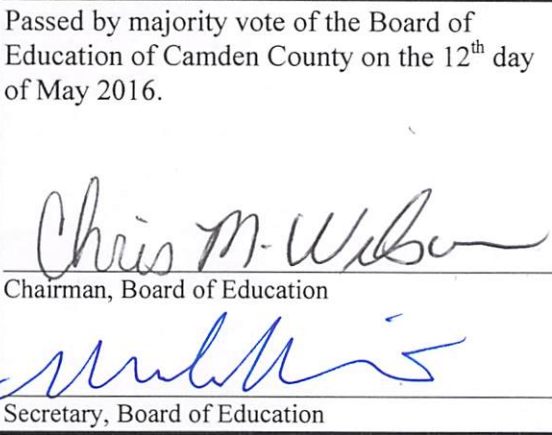 Passed by majority vote of the Board of
Education of Camden County on the 12th day
of May 2016.
Chris M. Wilson
Chairman, Board of Education
Secretary, Board of Education